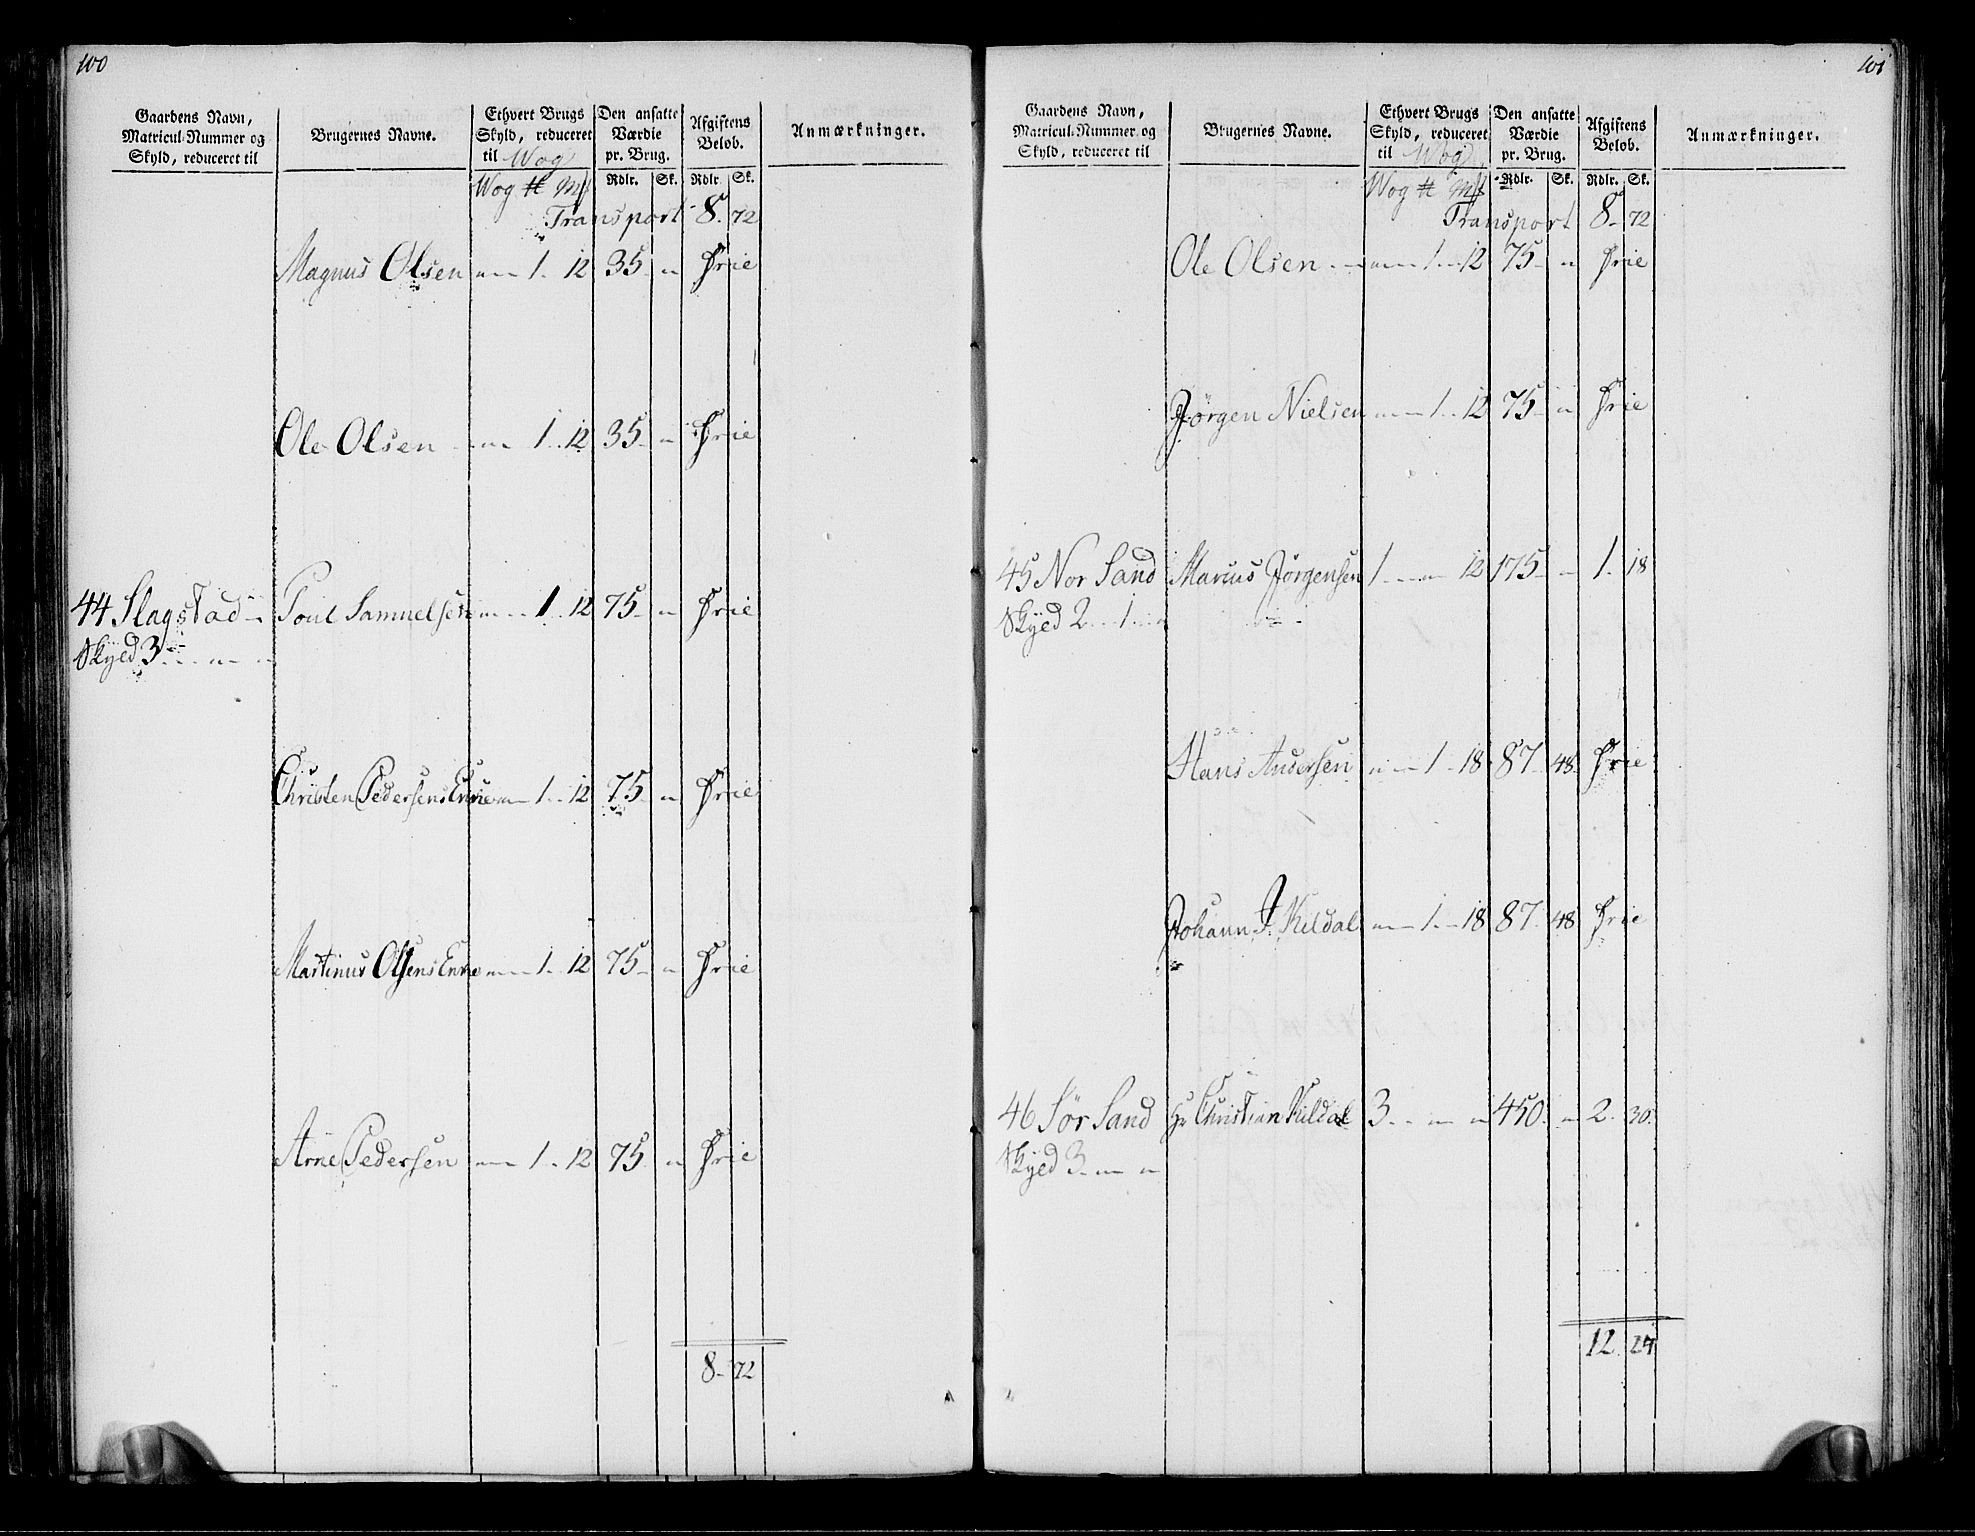 100
Gaardens Navn, Matricul-Nummer og Skyld, reduceret til
Brugernes Navne.
Ethvert Brugs Skyld, reduceret til Wog
Den ansatte Værdie pr. Brug.
Afgiftens Beløb.
Anmærkninger.
Wog ℔ Mk Rdlr. Sk. Rdlr. Sk.
Transport 8 72
Magnus Olsen „ 1 12 35 „ Frie
Ole Olsen „ 1 12 35 „ Frie
44 Slagstad Poul Samuelsen „ 1 12 75 „ Frie
Skyld 3 „ „
Christen Pedersens Enke „ 1 12 75 „ Frie
Martinus Olsens Enke „ 1 12 75 „ Frie
Arne Pedersen „ 1 12 75 „ Frie
8 72
101
Gaardens Navn, Matricul-Nummer og Skyld, reduceret til
Brugernes Navne.
Ethvert Brugs Skyld, reduceret til Wog
Den ansatte Værdie pr. Brug.
Afgiftens Beløb.
Anmærkninger.
Wog ℔ Mk Rdlr. Sk. Rdlr. Sk.
Transport 8 72
Ole Olsen „ 1 12 75 „ Frie
Jørgen Nielsen „ 1 12 75 „ Frie
45 Nor Sand Marcus Jørgensen 1 „ 12 175 „ 1 18
Skyld 2 1 „
Hans Andersen „ 1 18 87 48 Frie
Johann J. Kildal „ 1 18 87 48 Frie
46 Sør Sand Hr Christian Kildal 3 „ „ 450 „ 2 30
Skyld 3 „ „
12 24